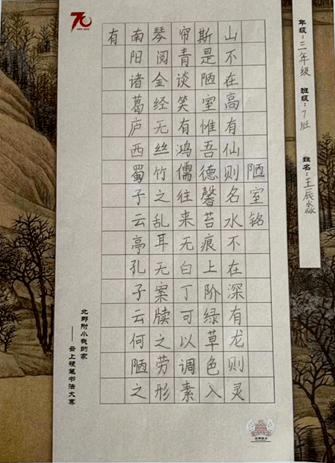 年级： 年级 班级：7班 姓名：王辰
陋室铭
山不在高有仙则名水不在深有龙则灵
斯是陋室惟吾德馨苔痕上阶绿草色入
帘青谈笑有鸿儒往来无白丁可以调素
琴阅金经无丝竹之乱耳无案牍之劳形
南阳诸葛庐西蜀子云亭孔子云何陋之
有
70
北郊附小我的家
——云上硬笔书法大赛